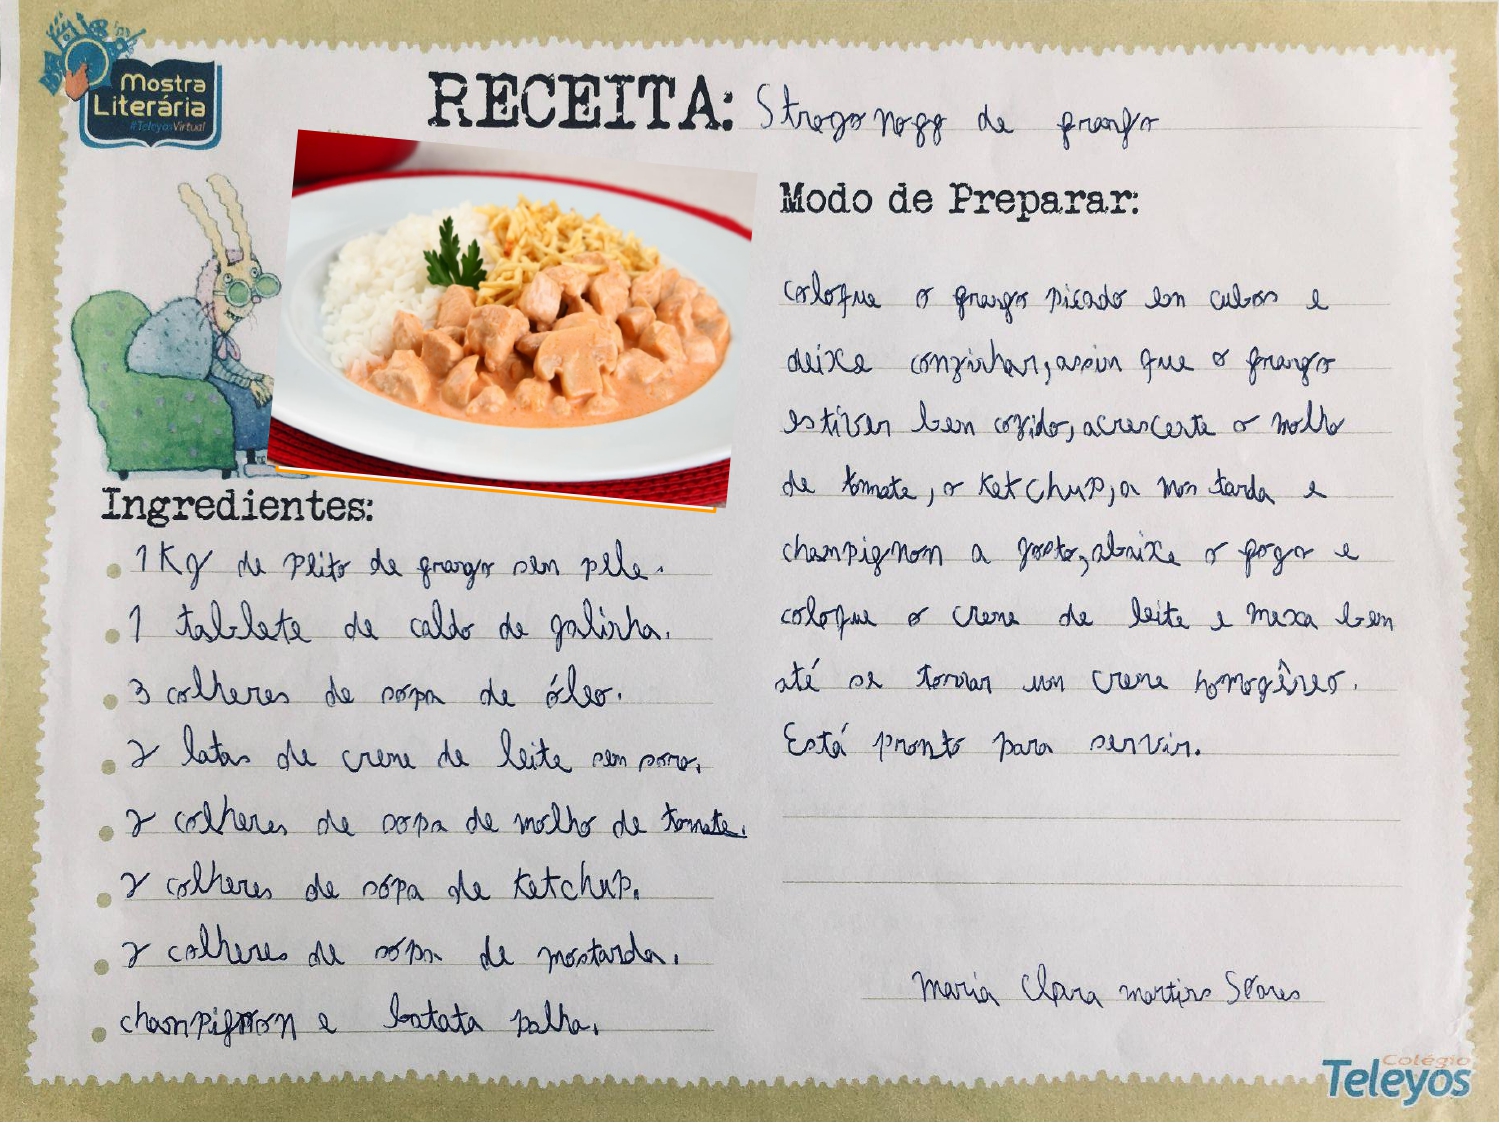 Mostra
Literária
#TeleyosVirtual
RECEITA: Strogonoff de frango
Ingredientes:
1 Kg de peito de frango sem pele.
1 tablete de caldo de galinha.
3 colheres de sopa de óleo.
2 latas de creme de leite sem soro.
2 colheres de sopa de molho de tomate.
2 colheres de sópa de Ketchup.
2 colheres de sópa de mostarda.
champignon e batata palha.
Modo de Preparar:
coloque o frango picado em cubos e
deixe conzinhar, assim que o frango
estiver bem cozido, acrescente o molho
de tomate, o ketchup, a mostarda e
champignon a gosto, abaixe o fogo e
coloque o creme de leite e mexa bem
até se tornar um creme homogêneo.
Está pronto para servir.
Maria Clara Martins Soares
Colégio
Teleyos